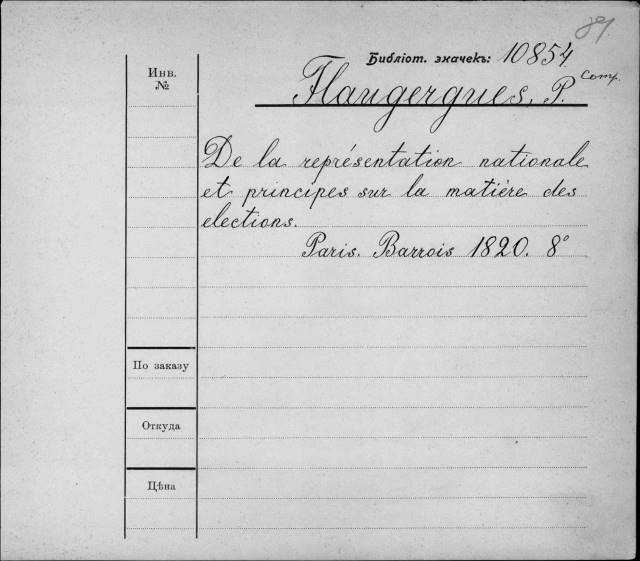 89.
Библіот. значекъ: 10854
Comp.
Инв.
№
Flaugergues, P.
De la représentation nationale
et principes sur la matière des
elections.
Paris. Barrois 1820. 8°
По заказу
Откуда
Цѣна